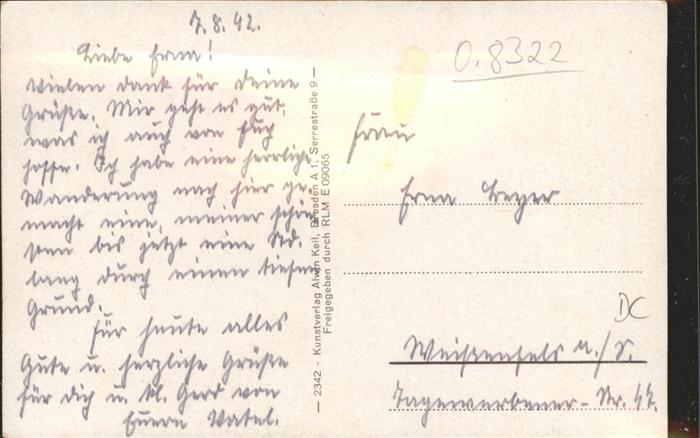 7.8.42.
Liebe Erna!
Vielen Dank für Deine
Grüße. Mir geht es gut,
was ich auch von Euch
hoffe. Ich habe eine herrliche
Wanderung nach hier ge-
macht eine, meiner schön-
sten bis jetzt eine Std.
lang durch einen tiefen
Grund.
Für heute alles
Gute u. herzliche Grüße
für Dich u. Kl. Gerd von
Euern Vatel.
— 2342 - Kunstverlag Alwin Keil, Dresden A 1, Serrestraße 9 —
Freigegeben durch RLM E 09065
0.8322
Frau
Erna Beyer
DC
Weißenfels a./S.
Tagewerbener-Str. 42.